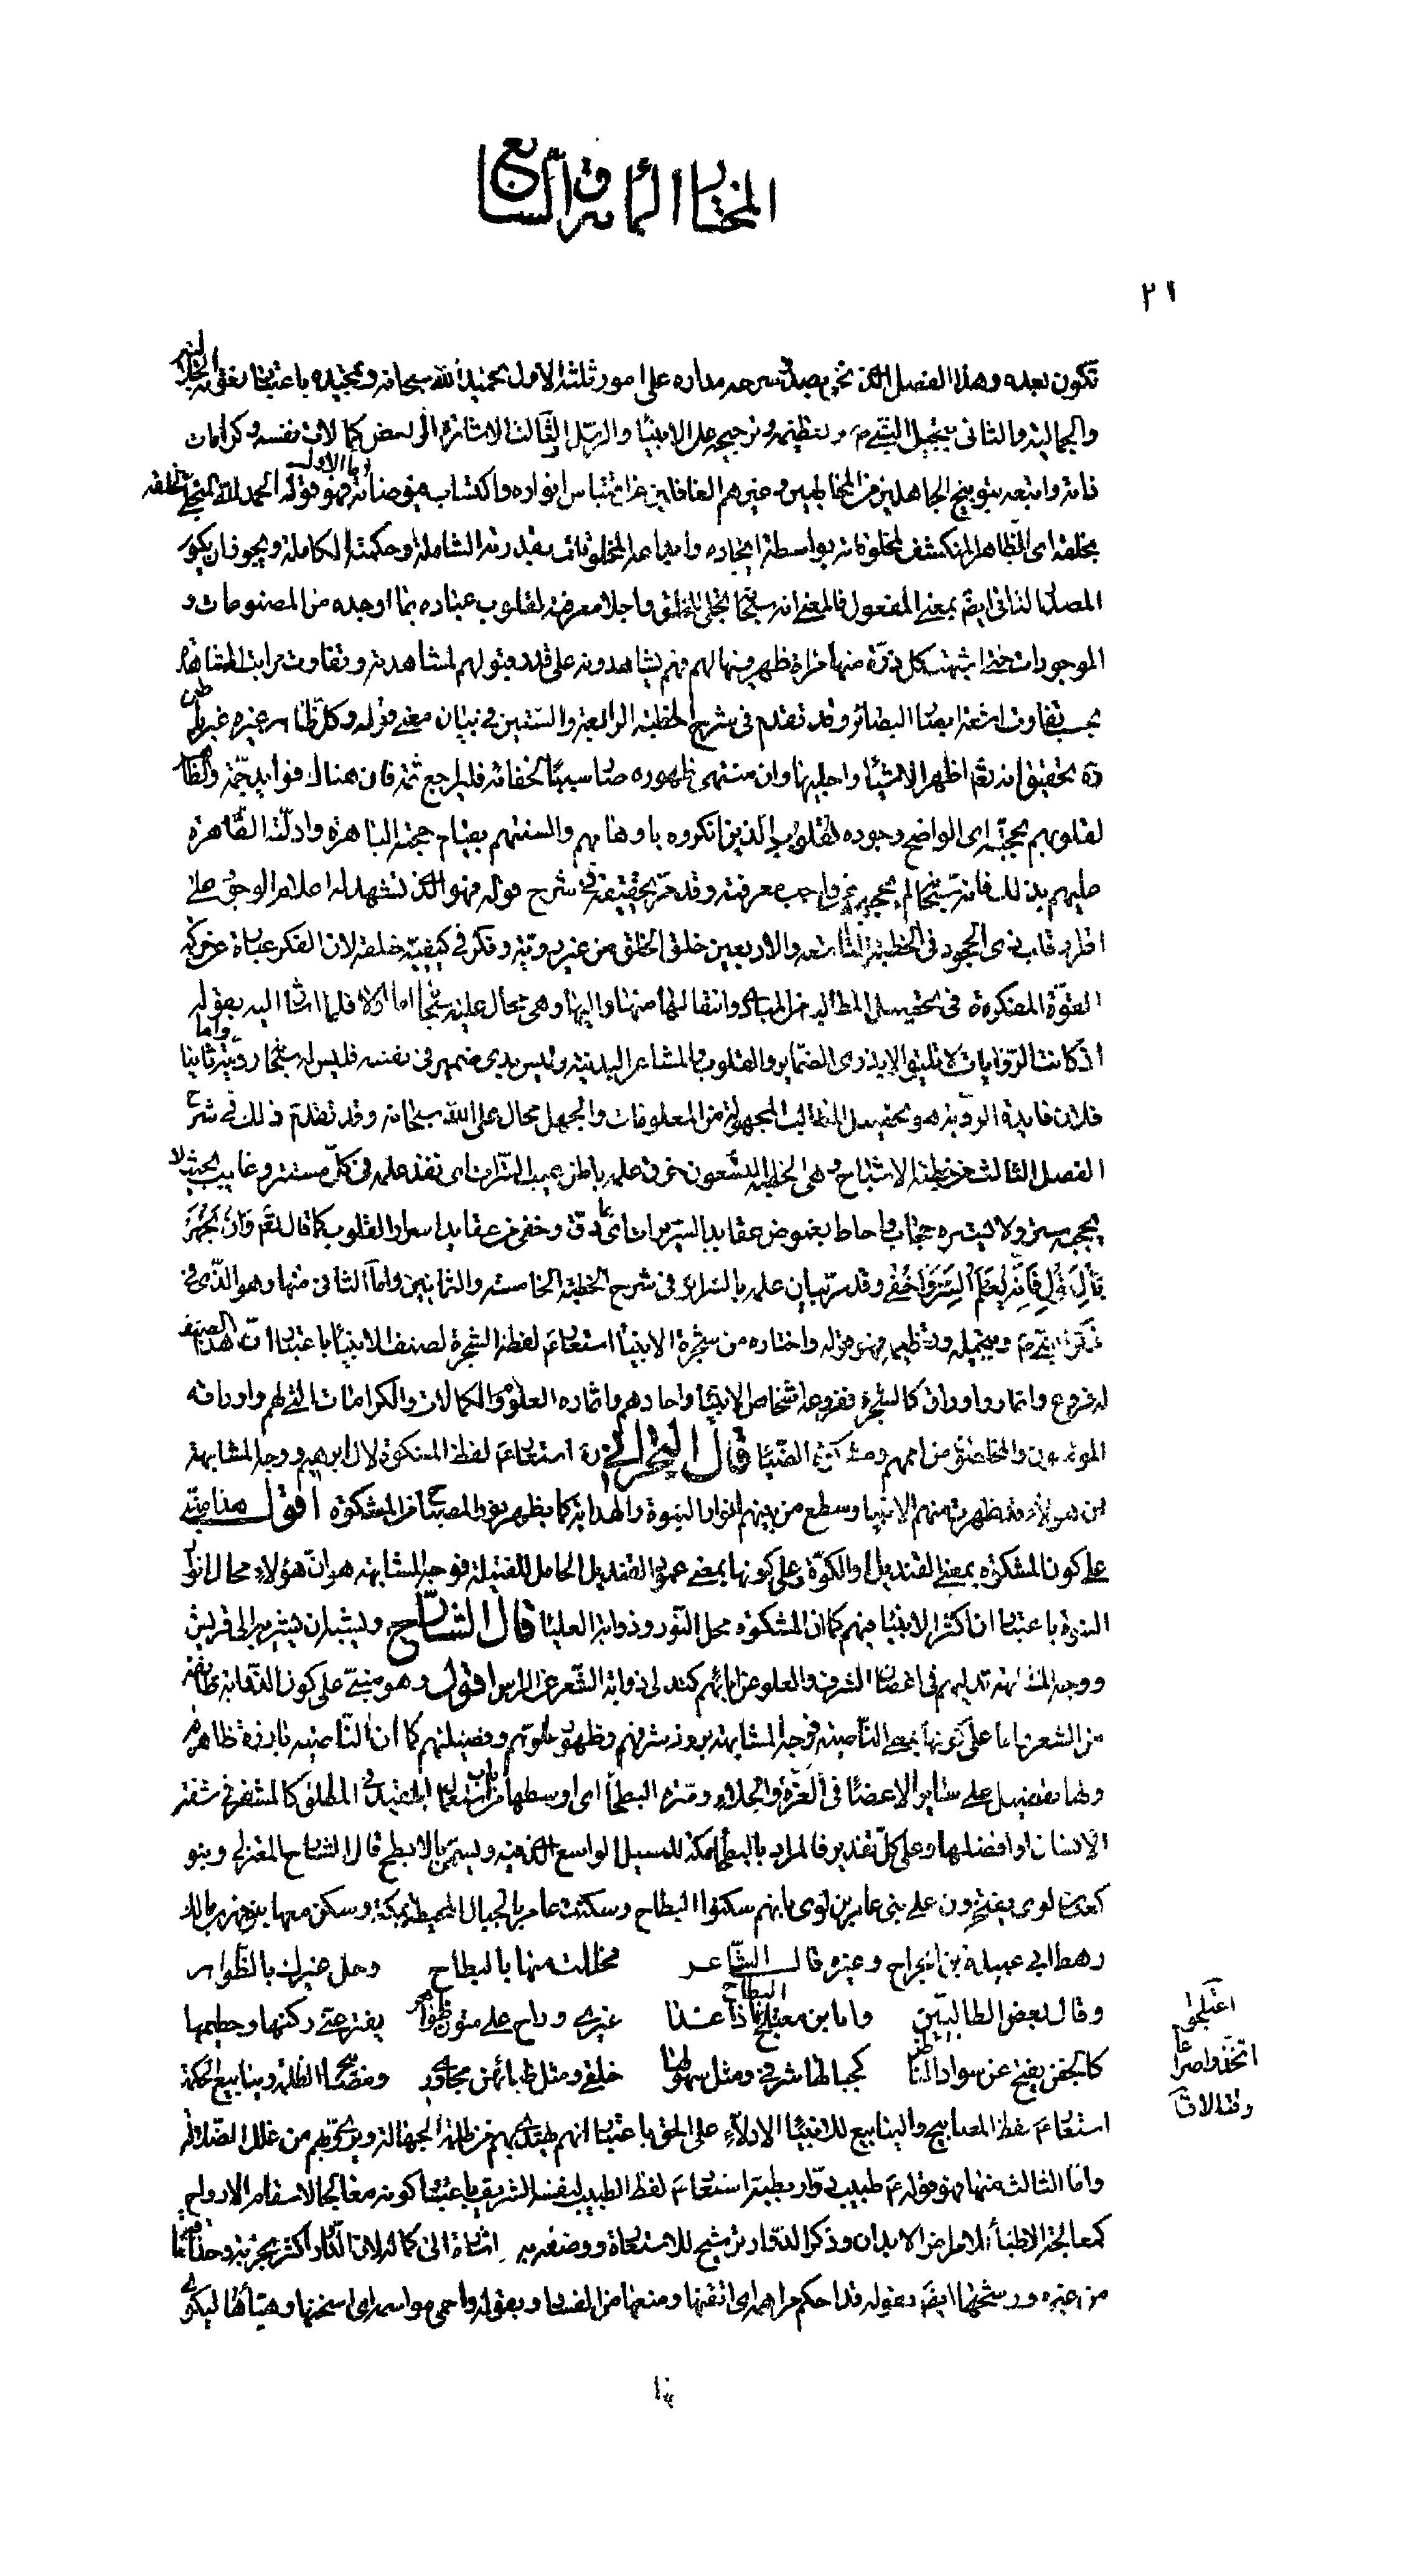 المختار المأة والسابع
٢١
تكون بعده وهذا الفصل الذي نحن بصدد شرحه مداره على امور ثلثة الاول تحميد الله سبحانه وتمجيده باعتبار نعوته الجلالية
والجمالية والثاني تبجيل النبي ص وتعظيمه وترجيحه على الانبياء والرسل الثالث الاشارة الى بعض كمالات نفسه وكرامات
ذاته واتبعه بتوبيخ الجاهلين من المخاطبين وغيرهم الغافلين عن اقتباس انواره واكتساب فيوضاته اما الاول فهو قوله الحمد لله المتجلى لخلقه
بخلقه اى الظاهر المنكشف لمخلوقاته بواسطة ايجاده المخلوقات بقدرته الشاملة وحكمته الكاملة ويجوز ان يكون
المصدر الثاني ايضا بمعنى المفعول فالمعنى انه سبحانه تجلى للخلق واجلا معرفته لقلوب عباده بما اوجده من المصنوعات و
الموجودات حتى اشبهت كل ذرة منها مرآة ظهر فيها لهم فهم يشاهدونه على قدر قبولهم لمشاهدته وتفاوت مراتب المشاهدة
بحسب تفاوت اشعة ابصار البصائر وقد تقدم في شرح الخطبة الرابعة والستين في بيان معنى قوله وكل ظاهر غيره غير باطن
تحقيق انه تعالى اظهر الاشياء واجليها وان منتهى ظهوره صار سببا لخفائه فليراجع ثمة فان هناك فوايد جمة والظاهر
لقلوبهم بحجته اى الواضح وجوده لقلوب الذين انكروه باوهامهم والسنتهم بقيام حجته الباهرة وادلته القاهرة
عليهم بذلك فانه سبحانه لم يحجبها عن واجب معرفته وقد مر تحقيقه في شرح قوله فهو الذي تشهد له اعلام الوجود على
اقرار قلب ذى الجحود في الخطبة التاسعة والاربعين خلق الخلق من غير روية وفكر في كيفية خلقه لان الفكر عبارة عن حركة
القوة المفكرة في تحصيل المطالب من المبادى وانتقالها منها واليها وهي محال عليه سبحانه اما اولا فلما اشار اليه بقوله
اذ كانت الرويات لا تليق الا بذوى الضماير والقلوب والمشاعر البدنية وليس بذى ضمير في نفسه فليس له سبحانه روية واما ثانيا
فلان فايدة الروية هو تحصيل المطالب المجهولة من المعلومات والجهل محال على الله سبحانه وقد تقدم ذلك في شرح
الفصل الثالث من خطبة الاشباح وهي الخطبة التسعون خرق علمه باطن غيب السترات اى نفذ علمه في كل مستتر وغايب بحيث لا
يحجبه ستر ولا يستره حجاب واحاط بغموض عقايد السريرات اى ما دق وخفى من عقايد اسرار القلوب كما قال تعالى وان تجهر
بالقول فانه يعلم السر واخفى وقد مر بيان علمه بالسراير في شرح الخطبة الخامسة والثمانين واما الثاني منها وهو الذي في
ذكر النبي ص وتبجيله وتعظيمه فهو قوله واختاره من شجرة الانبياء استعارة لفظ الشجرة لصنف الانبياء باعتبار ان هذا الصنف
له فروع واثمار واوراق كالشجرة ففروعه اشخاص الانبياء واحادهم واثماره العلوم والكمالات والكرامات التي لهم واوراقه
المؤمنون والخلصون من اممهم ومشكوة الضياء قال البحراني ره استعارة لفظ المشكوة لآل ابراهيم ووجه المشابهة
ان هؤلاء قد ظهرت منهم الانبياء وسطع من بينهم انوار النبوة والهداية كما يظهر نور المصباح من المشكوة اقول هذا مبنى
على كون المشكوة بمعنى القنديل او الكوة وعلى كونها بمعنى عمود القنديل الحامل للفتيلة فوجه المشابهة هو ان هؤلاء محال انوار
النبوة باعتبار ان اكثر الانبياء منهم كما ان المشكوة محل النور وذوابة العلياء قال الشارح ويشبه ان يشير به الى قريش
ووجه المشابهة تدليهم في اغصان الشرف والعلو عن ابائهم كتدلى ذوابة الشعر عن الراس اقول وهو مبنى على كون الذوابة
من الشعر واما على كونها بمعنى الناصية فوجه المشابهة بروز شرفهم وظهور علوهم وفضيلتهم كما ان الناصية بارزة ظاهرة
ولها تفضيل على ساير الاعضاء في العزة والجلالة وسرة البطحاء اى اوسطها من باب استعمال المقيد في المطلق كالمشفر في شفة
الانسان او افضلها وعلى كل تقدير فالمراد بالبطحاء مكة للمسيل الواسع الذي فيه ويسمى بالابطح قال الشارح المعتزلي وبنو
كعب بن لوى يفتخرون على بنى عامر بن لوى بانهم سكنوا البطاح وسكنت عامر بالجبال المحيطة بمكة وسكن معها بنو فهر بن مالك
رهط ابي عبيدة بن الجراح وغيره قال الشاعر فحللت منها بالبطاح وحل غيرك بالظواهر
وقال بعض الطالبيين وانا ابن معتلج البطاح اذا غدا غيرى وراح على متون ظواهر يفتر عنى ركنها وحطيمها
كالجفن يفتح عن سواد الناظر كجبالها شرفى ومثل سهولها خلقى ومثل ظبائهن مجاورى ومصابيح الظلمة وينابيع الحكمة
استعارة لفظ المصابيح والينابيع للانبياء الادلاء على الحق باعتبار انهم يهتدى بهم من ظلمة الجهالة ويرتوى بهم من غلل الضلالة
واما الثالث منها فهو قوله ع طبيب دوار بطبه استعارة لفظ الطبيب لنفسه الشريف باعتبار كونه معالجا لاسقام الارواح
كمعالجة الاطباء لامراض الابدان وذكر الدوار ترشيح للاستعارة ووصفه به اشارة الى كماله لان الدوار اكثر تجربة وحذاقة
من غيره ورشحها ايضا بقوله قد احكم مراهمه اى اتقنها ومنعها من الفساد وبقوله واحمى مواسمه اى اسخنها وهيأها ليكوى
اعتلجوا
اتخذوا صراعا
وقتالا ق
بها